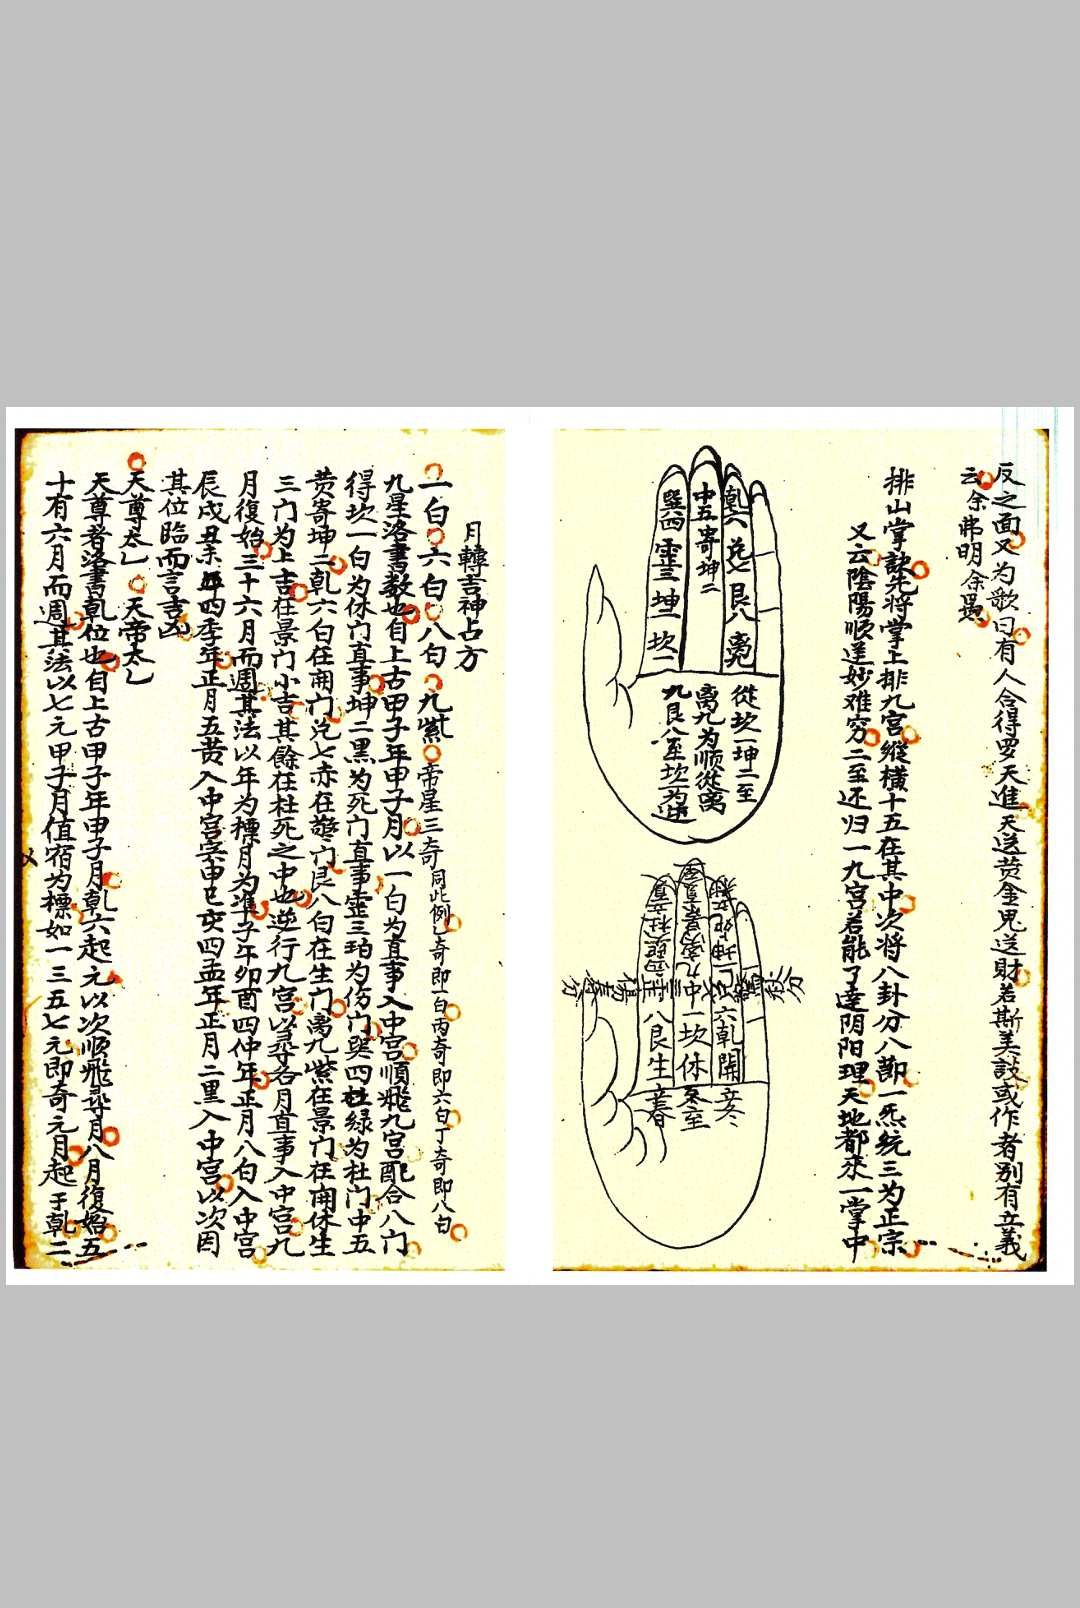 反之面又为歌曰有人会得罗天進天送黄金鬼送財若斯美談或作者别有立義
云余弗明余愚
排山掌訣先将掌上排九宫縱横十五在其中次将八卦分八節一炁统三为正宗
又云陰陽順逆妙难穷二至还归一九宫若能了達阴阳理天地都來一掌中
乾六 兑七 艮八 离九
中五寄坤二
巽四 震三 坤二 坎一
從坎一坤二至
离九为顺從离
九艮八至坎为逆
六乾開
中一坎休
八艮生
立冬
冬至
立春
月轉吉神占方
一白 六白 八白 九紫 帝星三奇同此例乙奇即一白丙奇即六白丁奇即八白
九星洛書数也自上古甲子年甲子月以一白为直事入中宫順飛九宫配合八门
得坎一白为休门直事坤二黑为死门直事震三珀为伤门巽四绿为杜门中五
黄寄坤二乾六白在開门兑七赤在驚门艮八白在生门离九紫在景门在開休生
三门为上吉在景门小吉其餘在杜死之中也逆行九宫以尋各月直事入中宫九
月復始三十六月而週其法以年为標月为準子午卯酉四仲年正月八白入中宫
辰戌丑未年四季年正月五黄入中宫寅申巳亥四孟年正月二黑入中宫以次因
其位臨而言吉凶
天尊太乙 天帝太乙
天尊者洛書乾位也自上古甲子年甲子月乾六起元以次順飛尋月八月復始五
十有六月而週其法以七元甲子月值宿为標如一三五七元即奇元月起于乾二